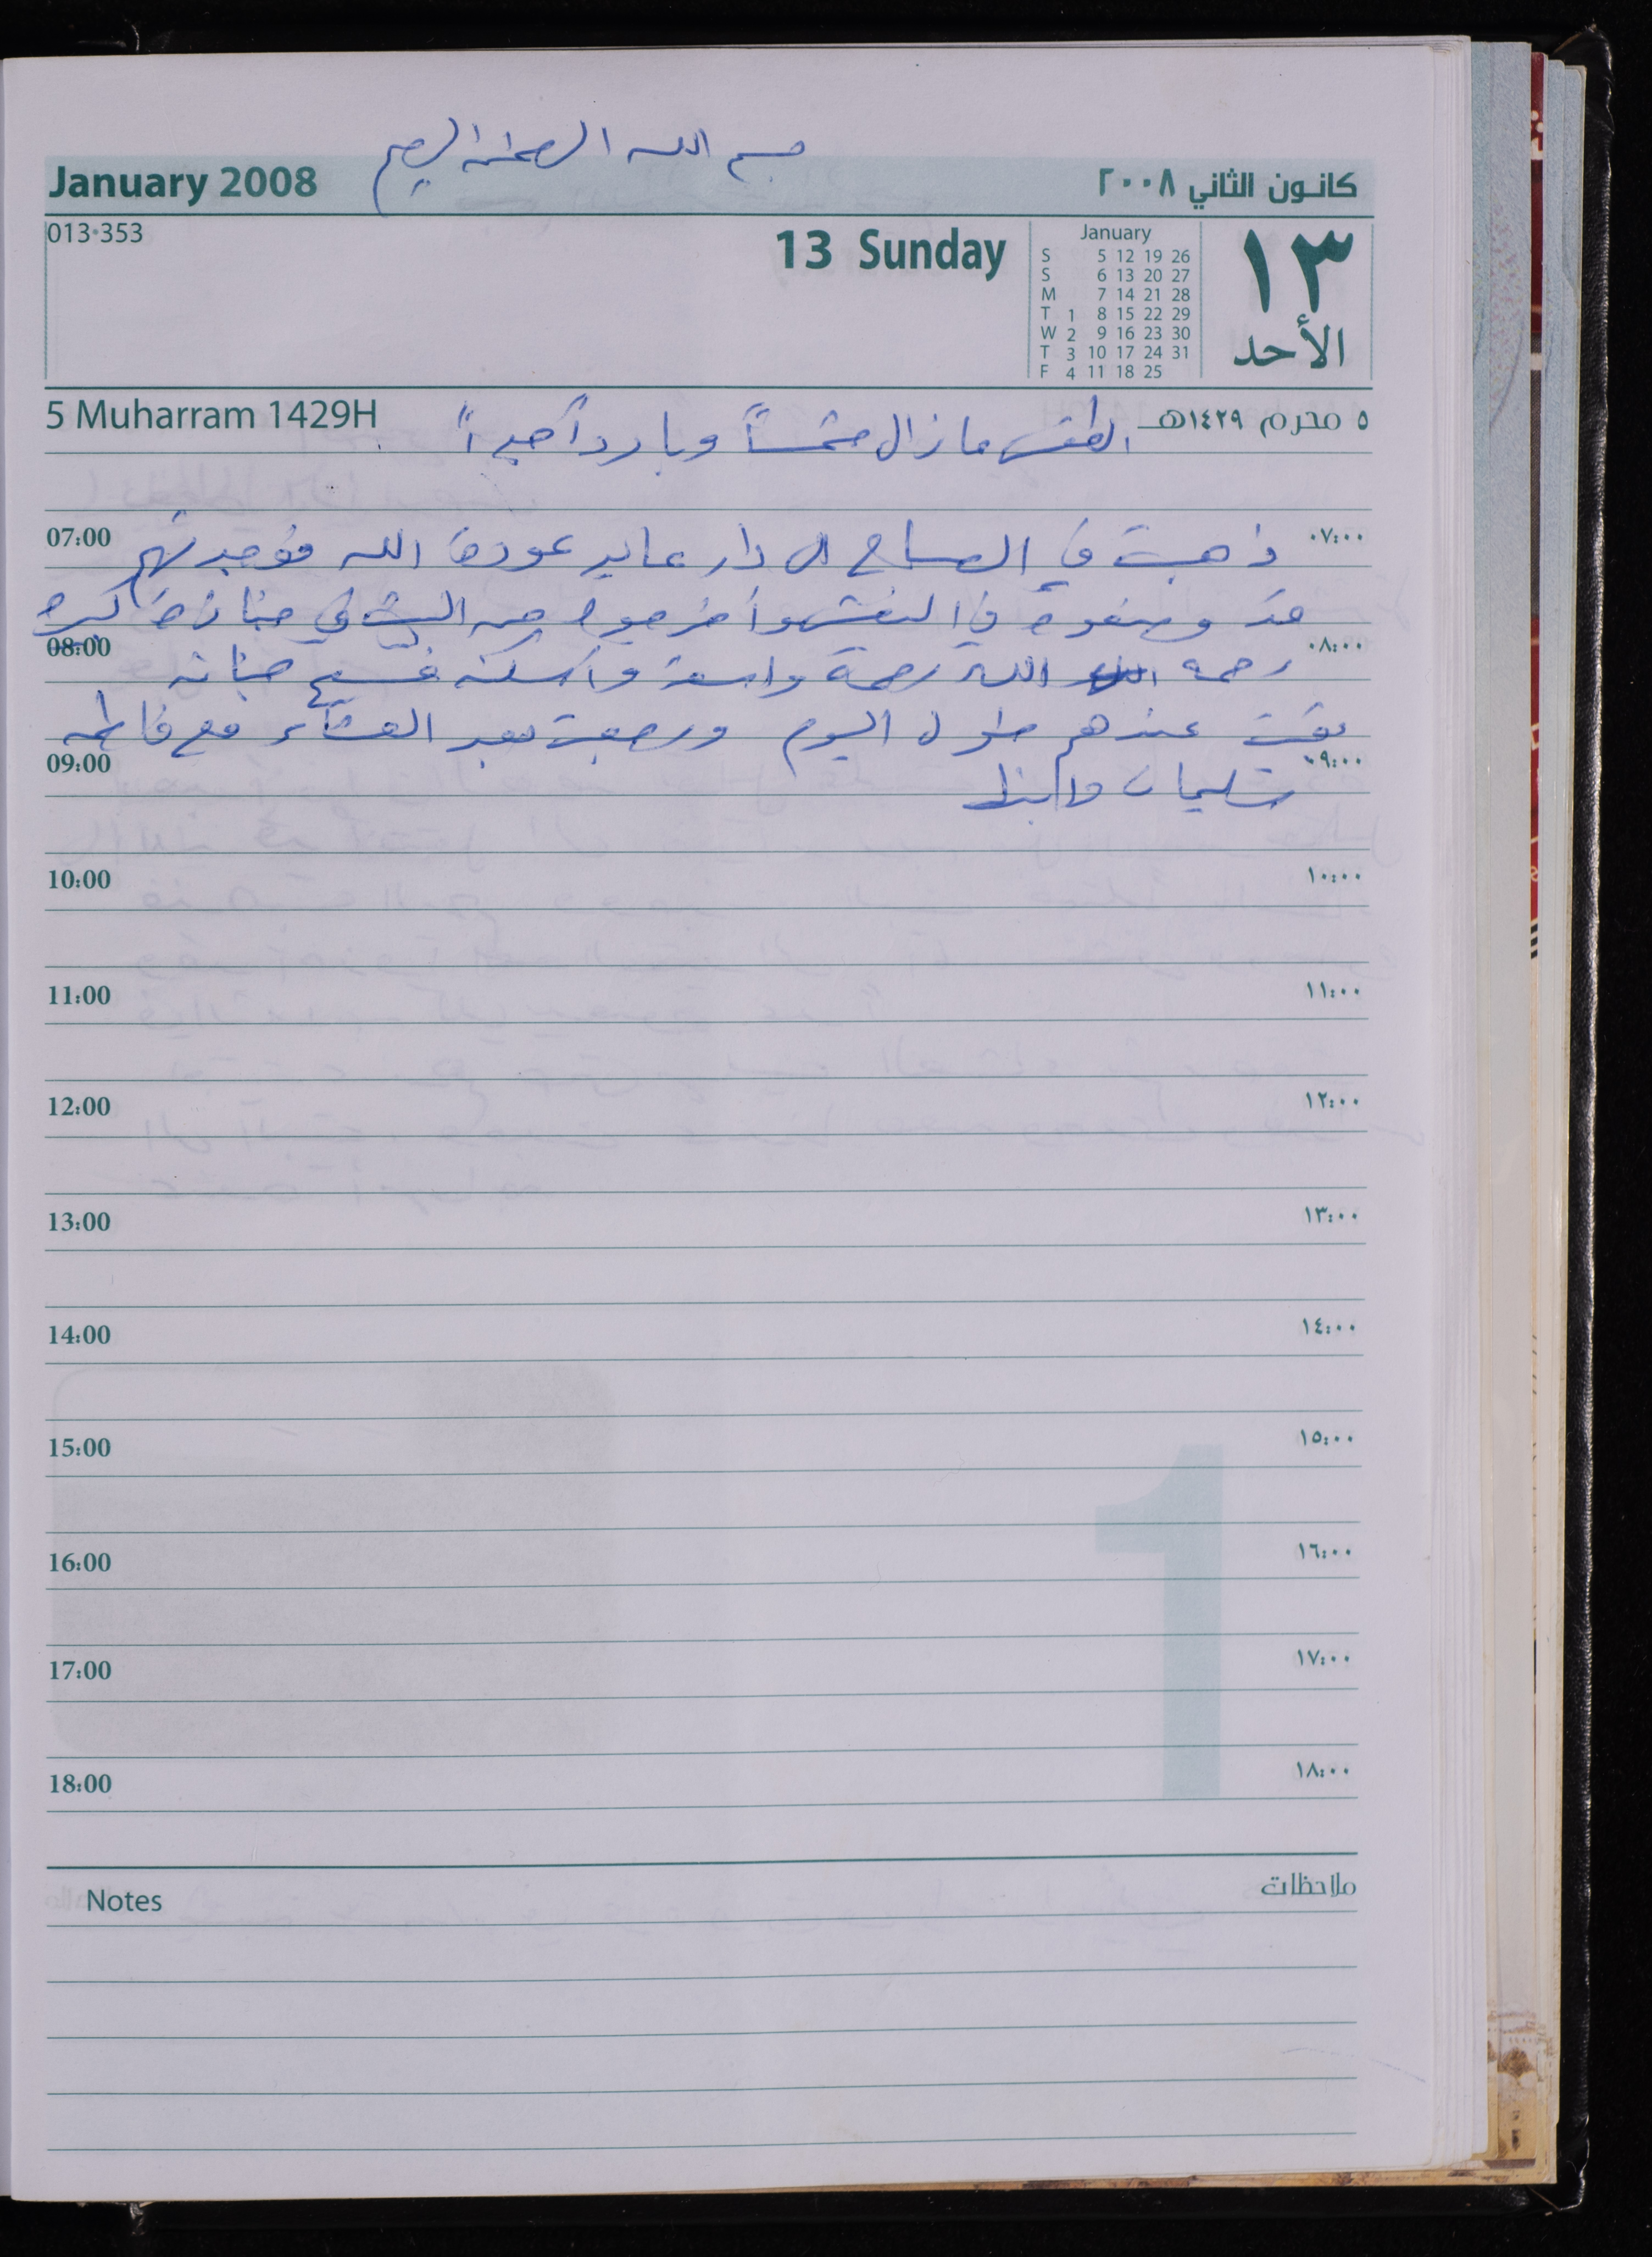 بسم الله الرحمن الرحيم
January 2008
كانون الثاني ٢٠٠٨
013-353
13 Sunday
January
S 5 12 19 26
S 6 13 20 27
M 7 14 21 28
T 1 8 15 22 29
W 2 9 16 23 30
T 3 10 17 24 31
F 4 11 18 25
١٣
الأحد
5 Muharram 1429H
٥ محرم ١٤٢٩هـ
الطقس ما زال مشمساً وبارداً جداً
07:00 ٠٧:٠٠
ذهبت في الصباح الى دار عايد عوده الله فوجدتهم
قد وضعوه في النعش وأخرجوه من البيت في جنازة كبيرة
08:00 ٠٨:٠٠
رحمه الله رحمة واسعة وأسكنه فسيح جناته
بقيت عندهم طول اليوم ورجعت بعد العشاء مع فاطمه
09:00 ٠٩:٠٠
سليمان وابنها
10:00 ١٠:٠٠
11:00 ١١:٠٠
12:00 ١٢:٠٠
13:00 ١٣:٠٠
14:00 ١٤:٠٠
15:00 ١٥:٠٠
16:00 ١٦:٠٠
17:00 ١٧:٠٠
18:00 ١٨:٠٠
1
Notes
ملاحظات